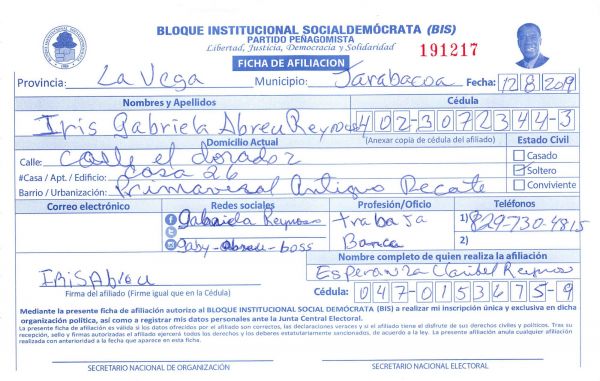 BLOQUE INSTITUCIONAL SOCIALDEMÓCRATA (BIS)
PARTIDO PEÑAGOMISTA
Libertad, Justicia, Democracia y Solidaridad
FICHA DE AFILIACION
191217
Provincia: La Vega Municipio: Jarabacoa Fecha: 12 8 2019
Nombres y Apellidos Cédula
Iris Gabriela Abreu Reynoso 402-3072344-3
Domicilio Actual (Anexar copia de cédula del afiliado) Estado Civil
Calle: calle el dorado 2 Casado
#Casa / Apt. / Edificio: casa 26 Soltero
Barrio / Urbanización: Primaveral Antiguo Conviviente
Correo electrónico Redes sociales Profesión/Oficio Teléfonos
Gabriela Reynoso trabaja 1) 829-730-4815
gaby-abreu-boss Banca 2)
Nombre completo de quien realiza la afiliación
IRIS Abreu Esperanza Claribel Reynoso
Firma del afiliado (Firme igual que en la Cédula) Cédula: 047-0153675-9
Mediante la presente ficha de afiliación autorizo al BLOQUE INSTITUCIONAL SOCIAL DEMÓCRATA (BIS) a realizar mi inscripción única y exclusiva en dicha
organización política, así como a registrar mis datos personales ante la Junta Central Electoral.
La presente ficha de afiliación es válida si los datos ofrecidos por el afiliado son correctos, las declaraciones veraces y si el afiliado tiene el disfrute de sus derechos civiles y políticos. Tras su
recepción, sello y firmas autorizadas el afiliado ejercerá todos los derechos y los deberes estatutariamente sancionados, de acuerdo a la ley. La presente afiliación anula cualquier afiliación
realizada con anterioridad a la fecha que aparece en esta ficha.
SECRETARIO NACIONAL DE ORGANIZACIÓN SECRETARIO NACIONAL ELECTORAL